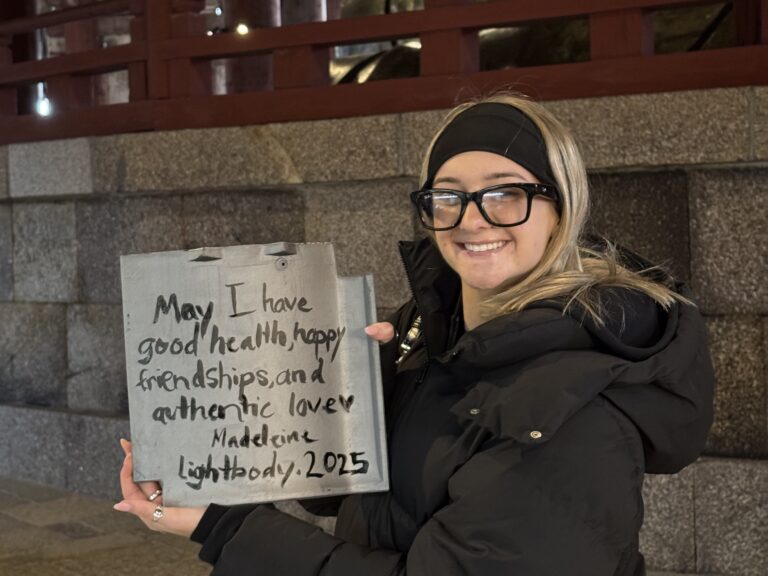 May I have
good health, happy
friendships, and
authentic love♥
Madeleine
Lightbody. 2025